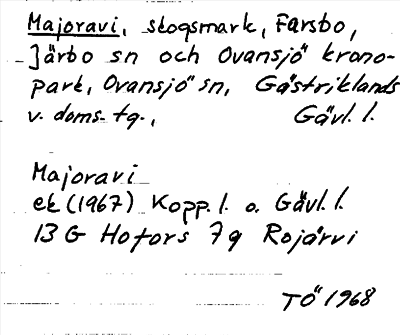 Majoravi, skogsmark, Farsbo,
Järbo sn och Ovansjö krono-
park, Ovansjö sn, Gästriklands
v. doms. tg., Gävl. l.
Majoravi
ek (1967) Kopp. l. o. Gävl. l.
13 G Hofors 7g Rojärvi
TÖ 1968